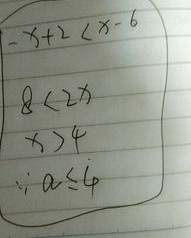 -x+2<x-6
8<2x
x>4
∵ a≤4